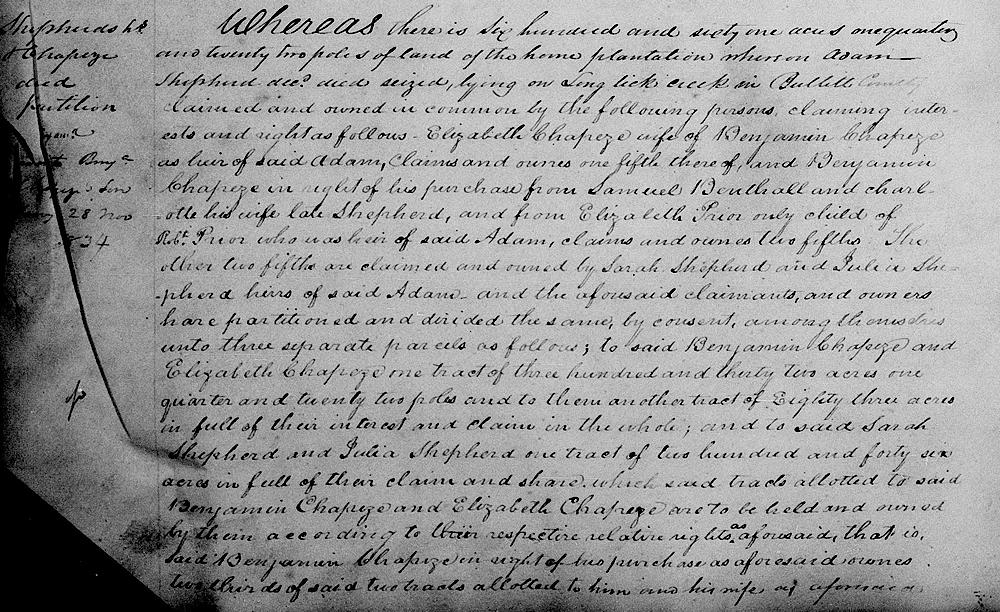 Shepherds hs
& Chapeze
deed
partition
28 Nov
34
Whereas there is Six hundred and sixty one acres onequarter
and twenty two poles of land of the home plantation whereon Adam
Shepherd decd. died seized, lying on Long lick creek in Bullitt County
claimed and owned in common by the following persons, claiming inter-
ests and right as follows - Elizabeth Chapeze wife of Benjamin Chapeze
as heir of said Adam, Claims and ownes one fifth thereof, and Benjamin
Chapeze in right of his purchase from Samuel Benthall and Charl-
-otte his wife late Shepherd, and from Elizabeth Prior only child of
Robt. Prior who was heir of said Adam, claims and ownes two fifths. The
other two fifths are claimed and owned by Sarah Shepherd and Julia She-
-pherd heirs of said Adam - and the aforesaid claimants, and owners
have partitioned and divided the same, by consent, among themselves
unto three separate parcels as follows; to said Benjamin Chapeze and
Elizabeth Chapeze one tract of three hundred and thirty two acres one
quarter and twenty two poles and to them another tract of Eighty three acres
in full of their interest and claim in the whole; and to said Sarah
Shepherd and Julia Shepherd one tract of two hundred and forty six
acres in full of their claim and share. which said tracts allotted to said
Benjamin Chapeze and Elizabeth Chapeze are to be held and owned
by them according to their respective relative rights as aforesaid, that is,
said Benjamin Chapeze in right of his purchase as aforesaid ownes
two thirds of said two tracts allotted to him and his wife as aforesaid,